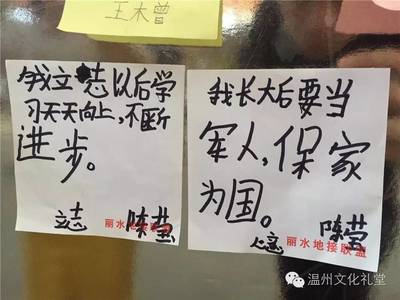 王木曾
我立志以后学
习天天向上,不断
进步。
立志 陈莹
丽水地接联盟
我长大后要当
军人,保家
为国。
陈莹
丽水地接联盟
温州文化礼堂